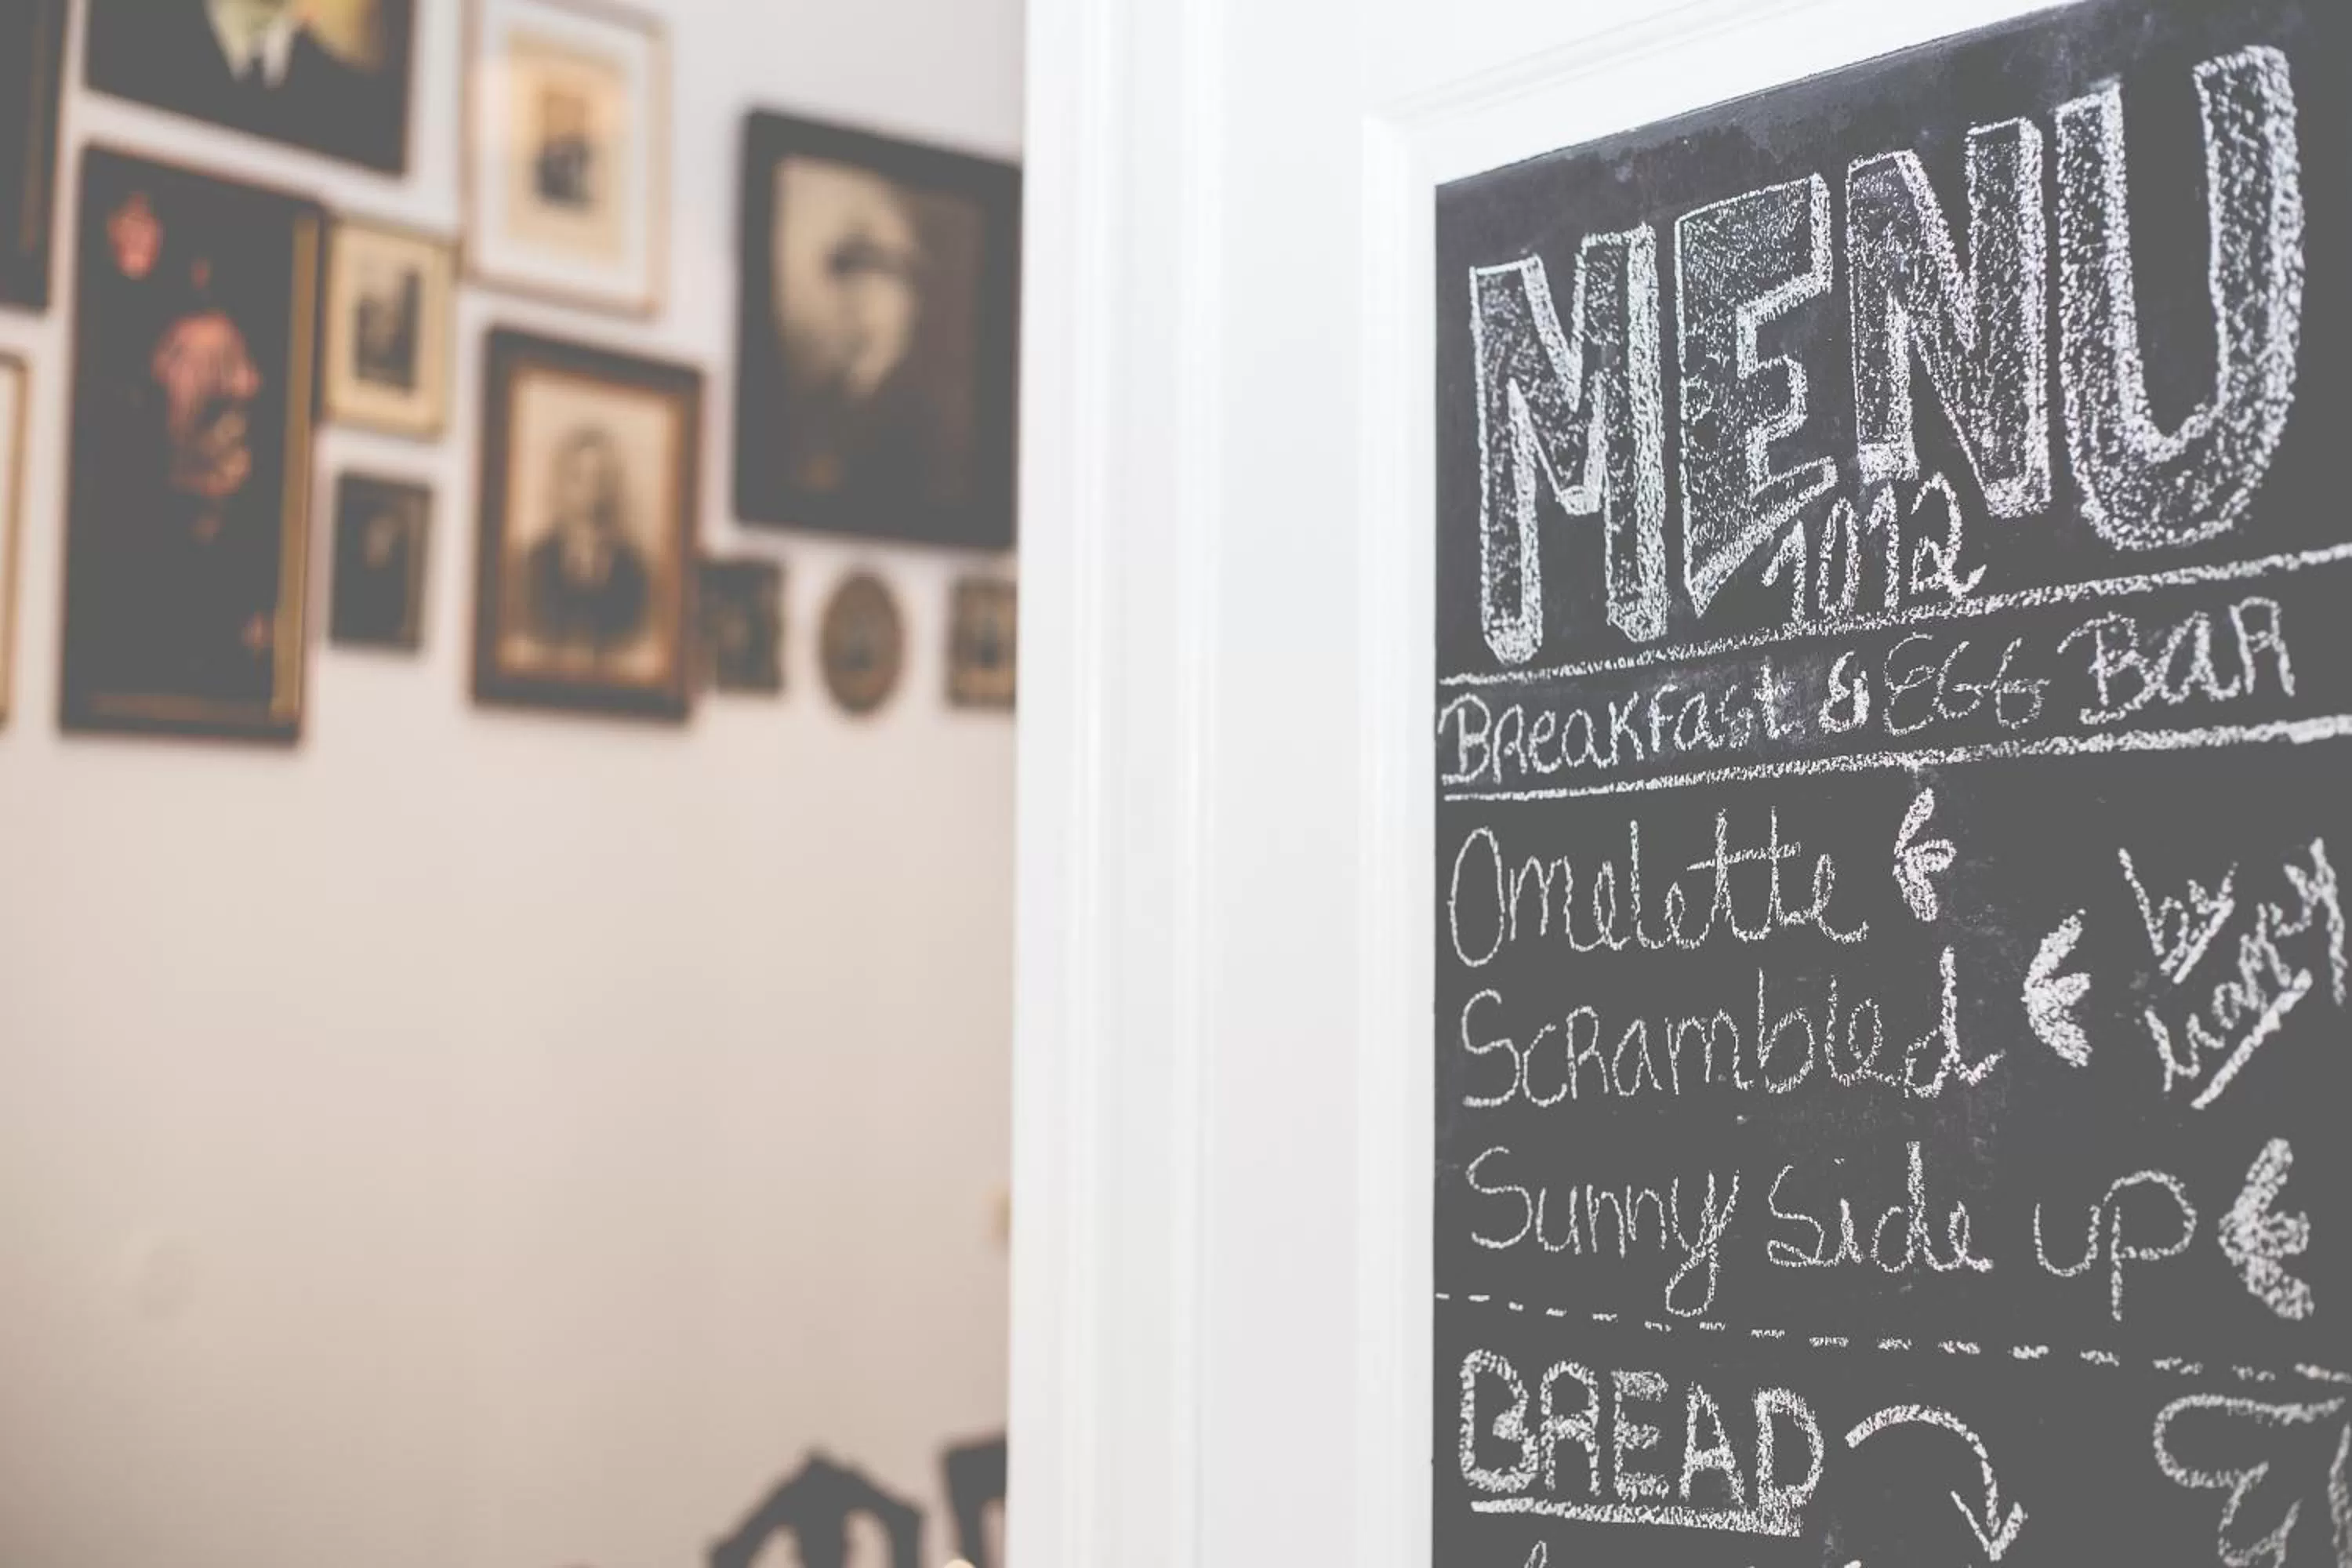 MENU
1012
Breakfast & Egg Bar
Omelette
Scrambled
by
Sunny Side up
BREAD